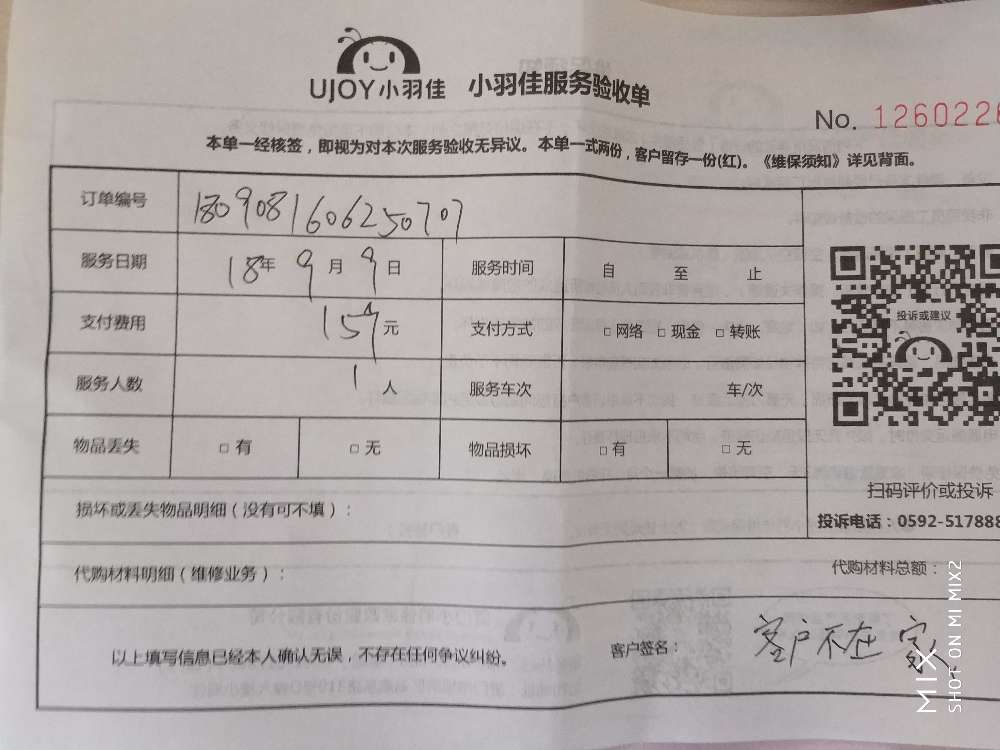 UJOY小羽佳 小羽佳服务验收单
No. 1260226
本单一经核签，即视为对本次服务验收无异议。本单一式两份，客户留存一份(红)。《维保须知》详见背面。
订单编号 1809081606250707
服务日期 18年 9月 9日 服务时间 自 至 止
支付费用 159元 支付方式 □ 网络 □ 现金 □ 转账
服务人数 1人 服务车次 车/次
物品丢失 □ 有 □ 无 物品损坏 □ 有 □ 无
投诉或建议
扫码评价或投诉
投诉电话：0592-517888
损坏或丢失物品明细（没有可不填）：
代购材料明细（维修业务）： 代购材料总额：
以上填写信息已经本人确认无误，不存在任何争议纠纷。 客户签名： 客户不在家
MIX
SHOT ON MI MIX2